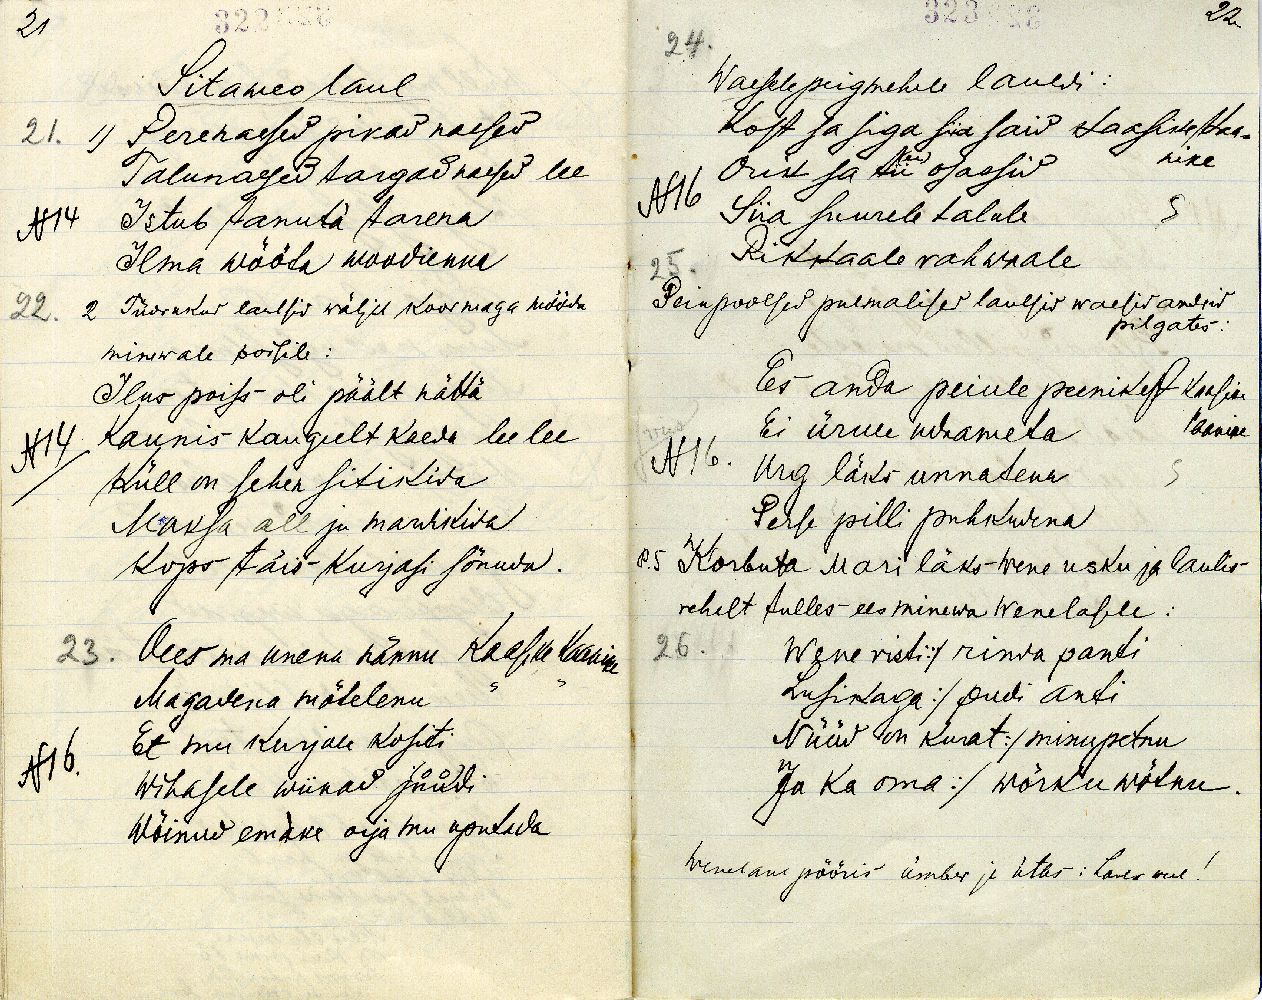 21
322
Sitaweo laul
21. 1) Perenaesed pikad naesed
Talunaesed targad naesed lee
N14 Istub tanuta tarena
Ilma wööta woodienna
22. 2 Tüdrukud laulsid wäljel koormaga mööda
minewale poisile:
Ilus poiss oli päält nättä
N14 Kaunis kaugeelt kaeda lee lee
Küll on seher sitikida
Maksa all ju mardikida
Kops täis kurjasi sõnuda.
23. Oles ma unena nännu Kaasike Kaanike
Magadena mõtelenu " "
N16. Et mu kurjale kositi
Wihasele wiinad jůůdi
Wõinud emake oija mu uputada
323
22
24.
Waesele peigmehele lauldi:
Kost sa siga siia said kaasike kaa-
nike
Orik sa tii osassid
N16 Siia suurele talule
Rikkaale rahwaale
25.
Peiupoolsed pulmalised laulsid waesid andsid
pilgates:
Es anda peiule peenikest kaasike
Ei ürule udrameta kaanike
N16. Urg läks unnatena
Perse pilli puhkudena
P.5 Korbuta Mari läks Wene usku ja laulis
rehelt tulles ees minewa Wenelasele:
26. Wene risti :/ rinda panti
Lusikaga :/ pudi anti
Nüüd on kurat :/ minu petnu
Ja ka oma :/ wõrku wõtnu.
Wenelane pööris ümber ja ütles: Laula weel!